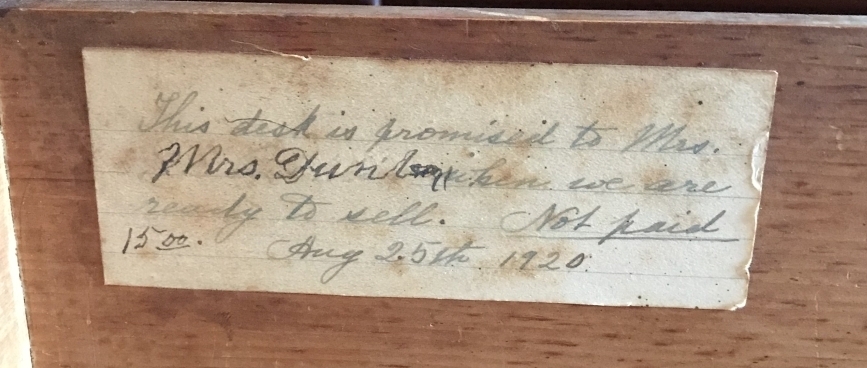 This desk is promised to Mrs.
Mrs. when we are
ready to sell. Not paid
15 00. Aug 25th 1920